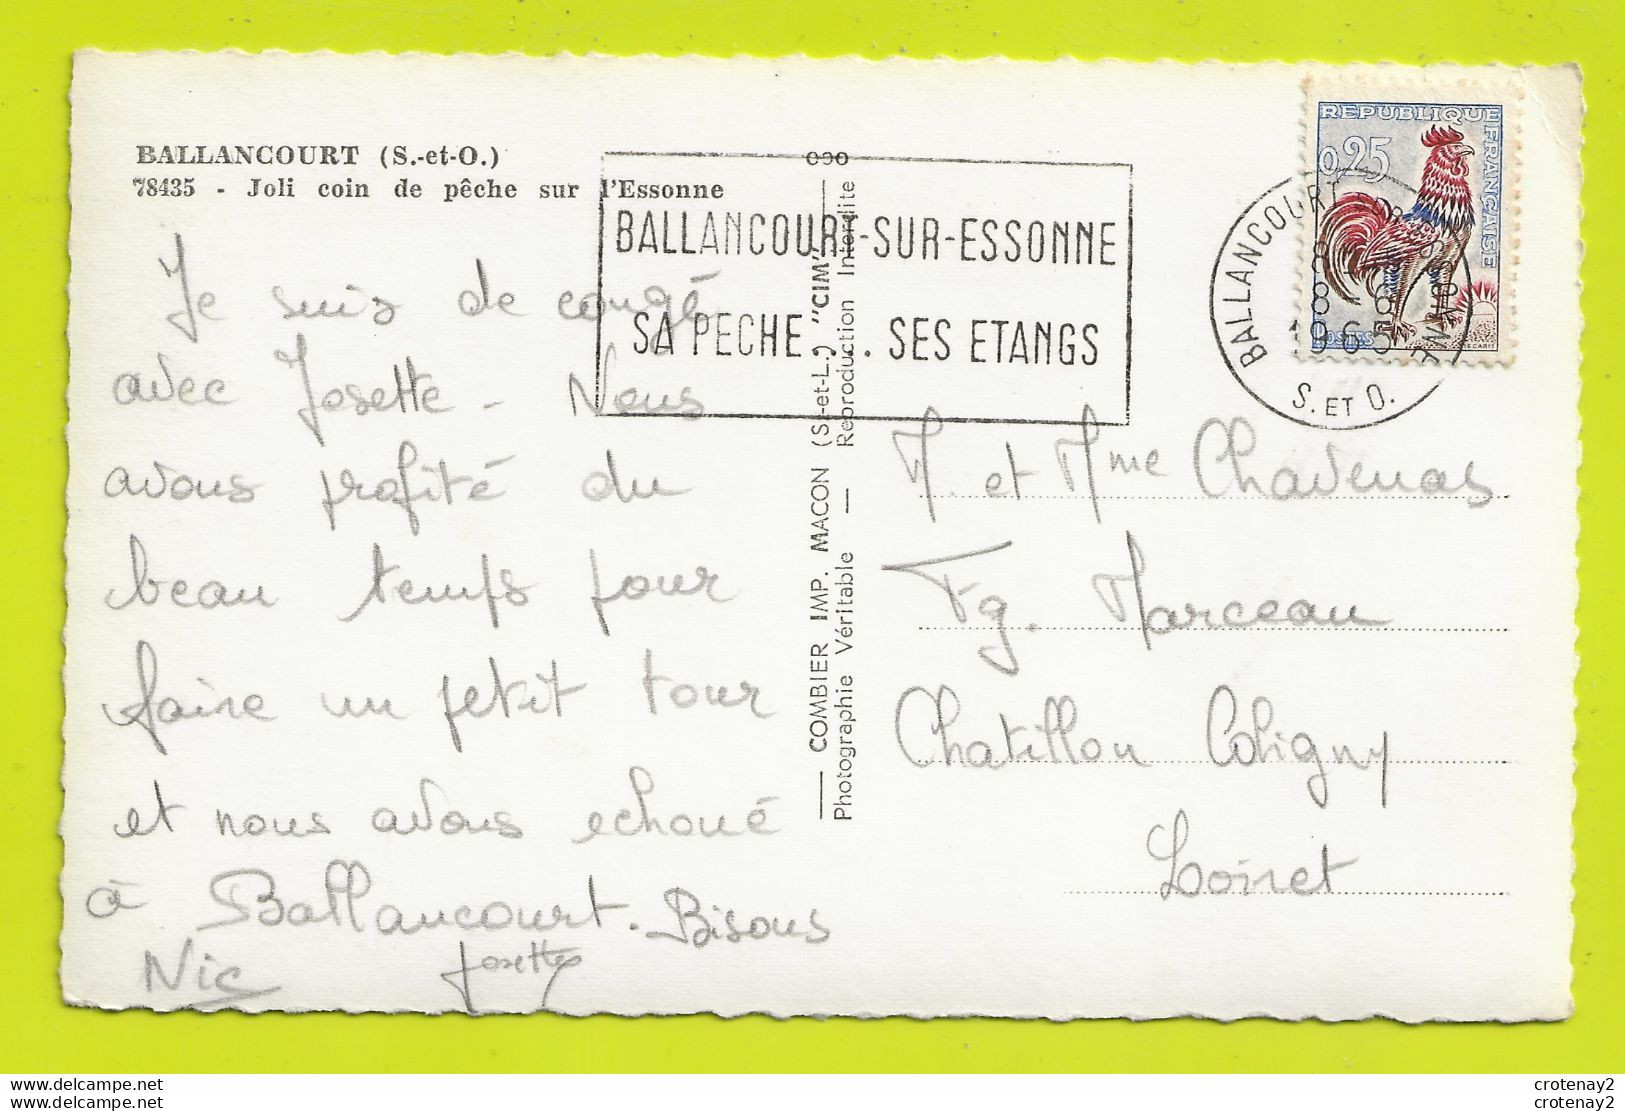 BALLANCOURT (S.-et-O.)
78435 - Joli coin de pêche sur l'Essonne
Je suis de congé
avec Josette - Nous
avons profité du
beau temps pour
faire un petit tour
et nous avons echoué
à Ballancourt. Bisous
Nic Josette
COMBIER IMP. MACON (S.-et-L.) "CIM"
Photographie Véritable — Reproduction Interdite
BALLANCOURT-SUR-ESSONNE
SA PECHE... SES ETANGS
REPUBLIQUE
FRANÇAISE
0,25
POSTES
DECARIS
BALLANCOURT SUR ESSONNE
8 6
1965
S. ET O.
M. et Mme Chavenas
Fg. Marceau
Chatillon Coligny
Loiret
www.delcampe.net
www.delcampe.com
crotenay2
crotenay2